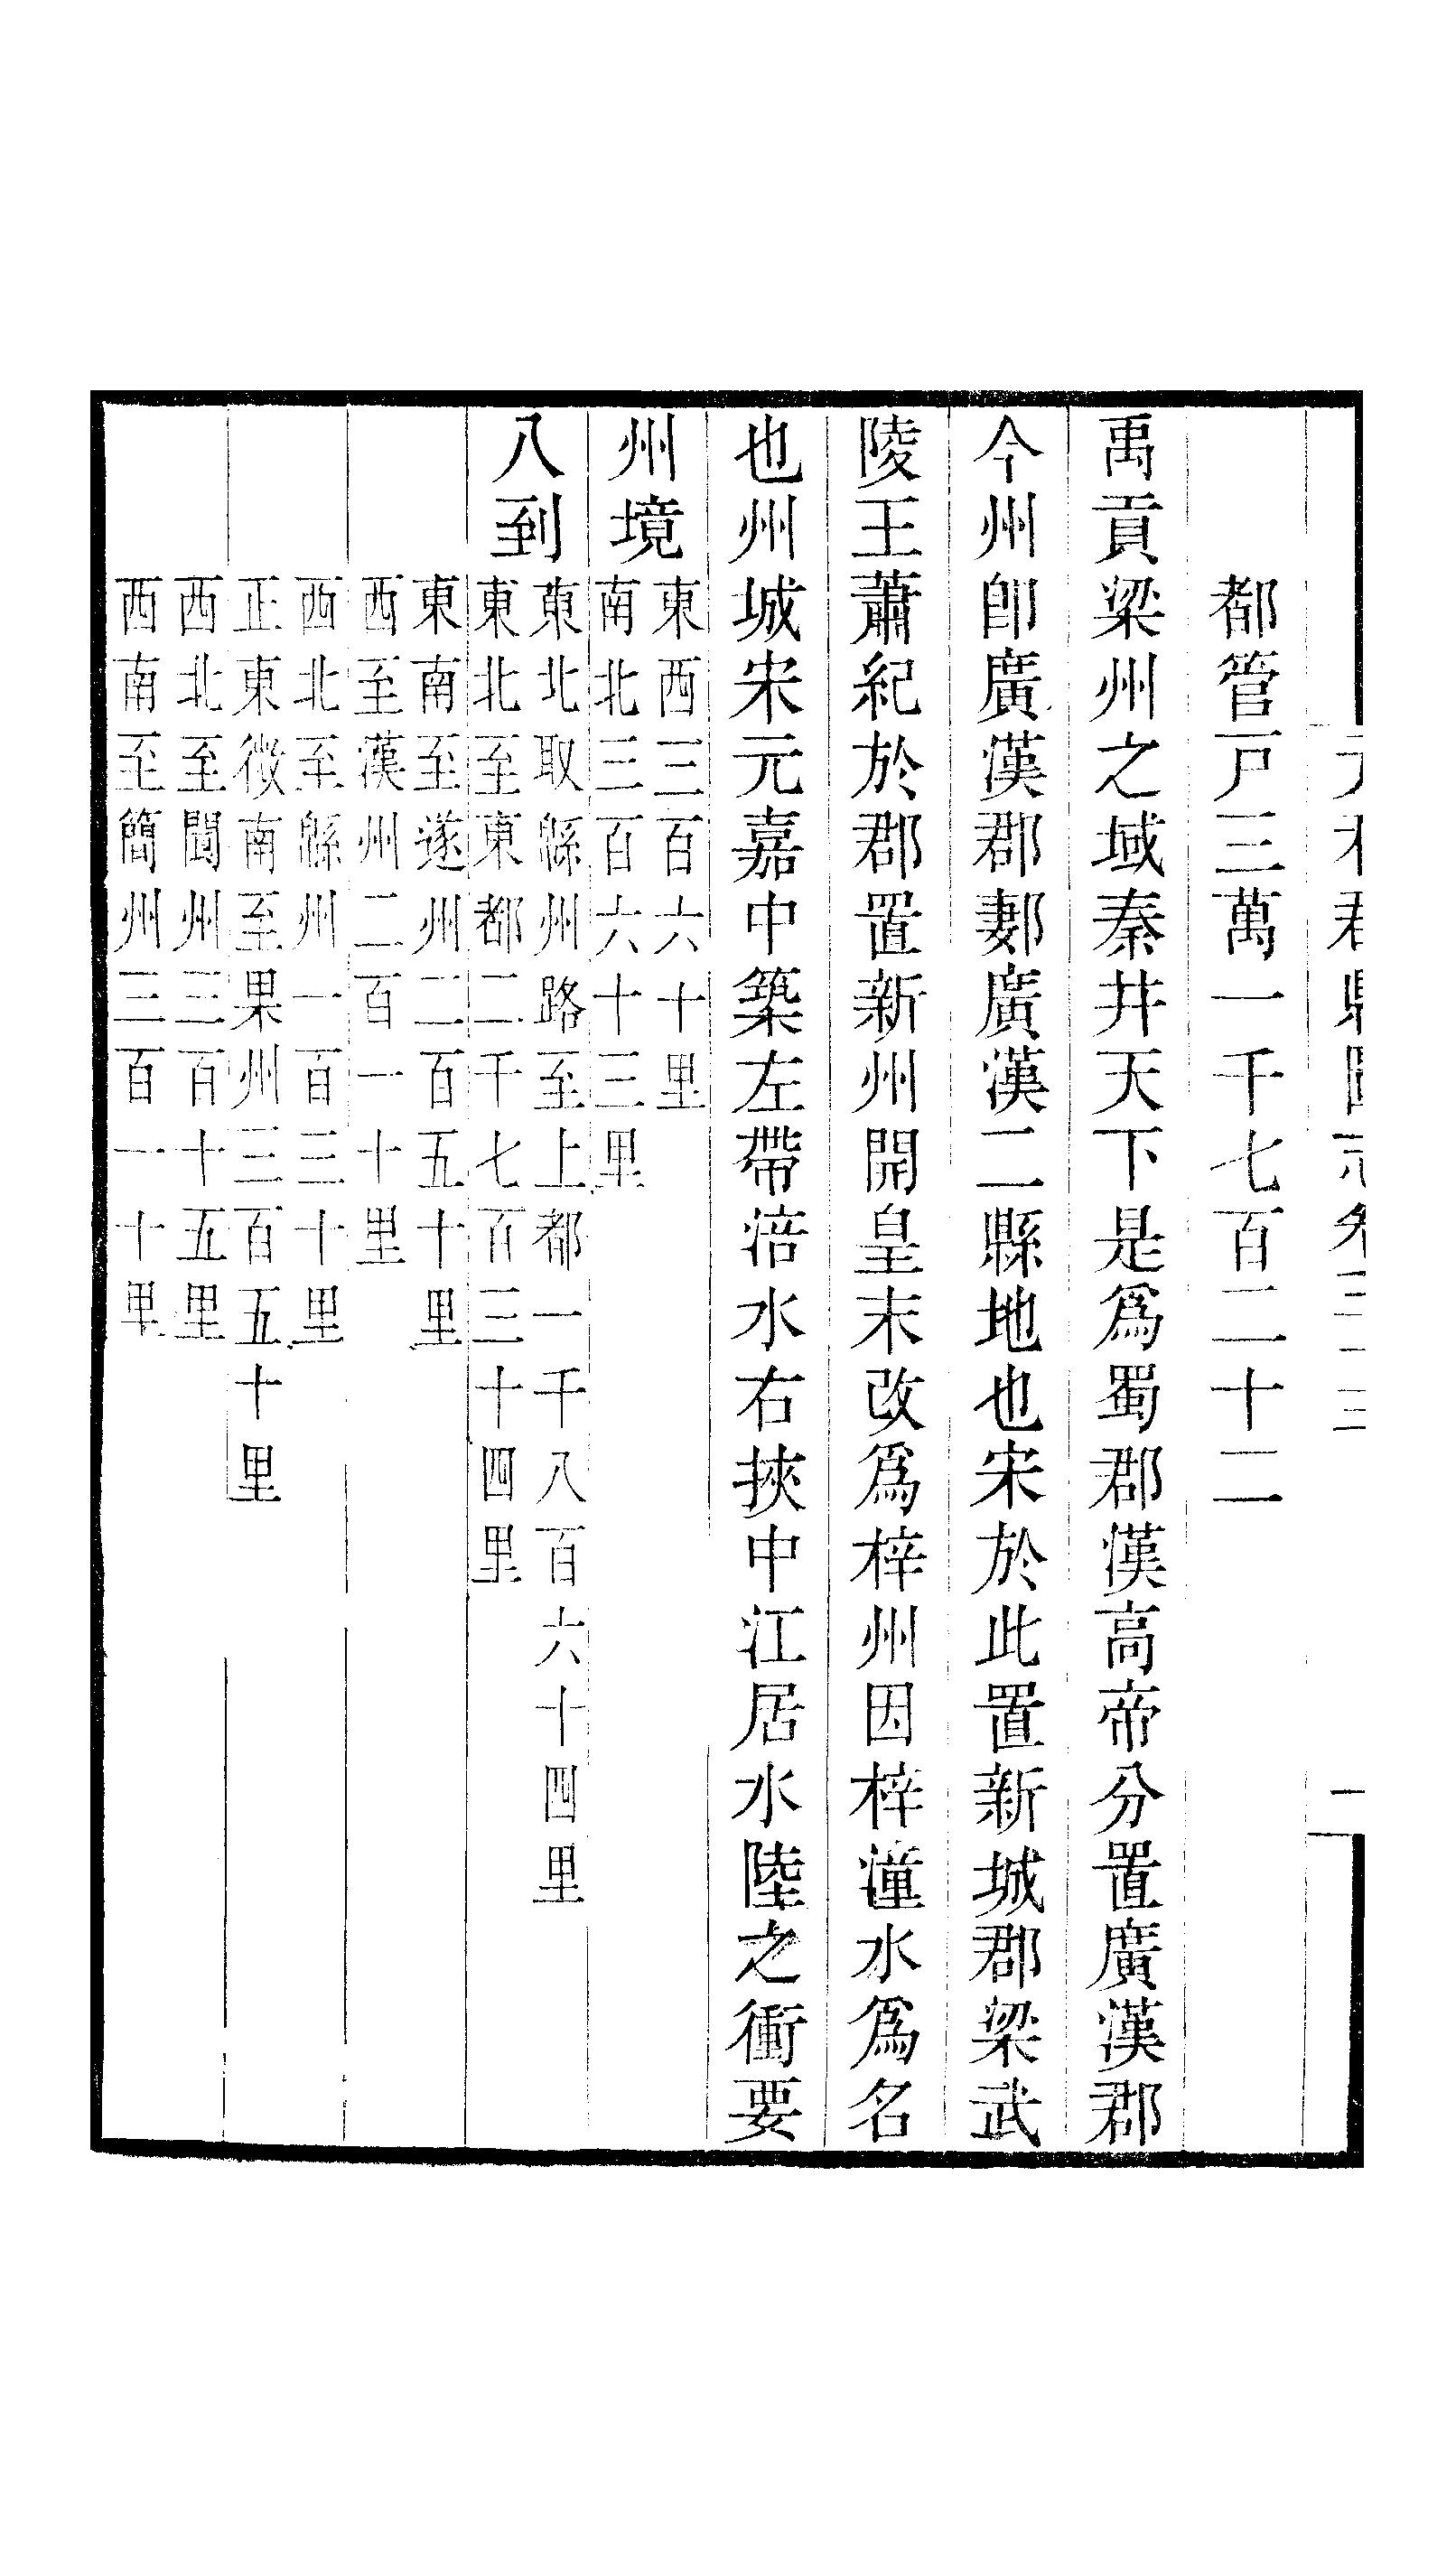 都管戸三萬一千七百二十二
禹貢梁州之域秦并天下是爲蜀郡漢高帝分置廣漢郡
今州卽廣漢郡郪廣漢二縣地也宋於此置新城郡梁武
陵王蕭紀於郡置新州開皇末改爲梓州因梓潼水爲名
也州城宋元嘉中築左帶涪水右挾中江居水陸之衝要
州境
東西三百六十里
南北三百六十三里
八到
東北取緜州路至上都一千八百六十四里
東北至東都二千七百三十四里
東南至遂州二百五十里
西至漢州二百一十里
西北至緜州一百三十里
正東微南至果州三百五十里
西北至閬州三百十五里
西南至簡州三百一十里